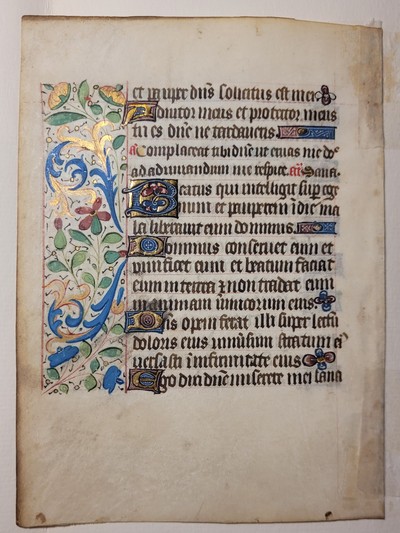 et pauper dn̄s solicitus est mei
Adiutor meus et protector meus
tu es dn̄e ne tardaueris.
a Complaceat tibi dn̄e ut eruas me dn̄e
ad adiuuandum me respice. an̄ Sana.
Beatus qui intelligit super ege
num et pauperem in die ma
la liberauit eum dominus.
Dominus conseruet eum et
uiuificet eum et beatum faciat
eum in terra ⁊ non tradat eum
in animam inimicorum eius
Dn̄s opem ferat illi super lectū
doloris eius uniūsum stratum eiꝰ
uersasti in infirmitate eius
Ego dixi dn̄e miserere mei sana